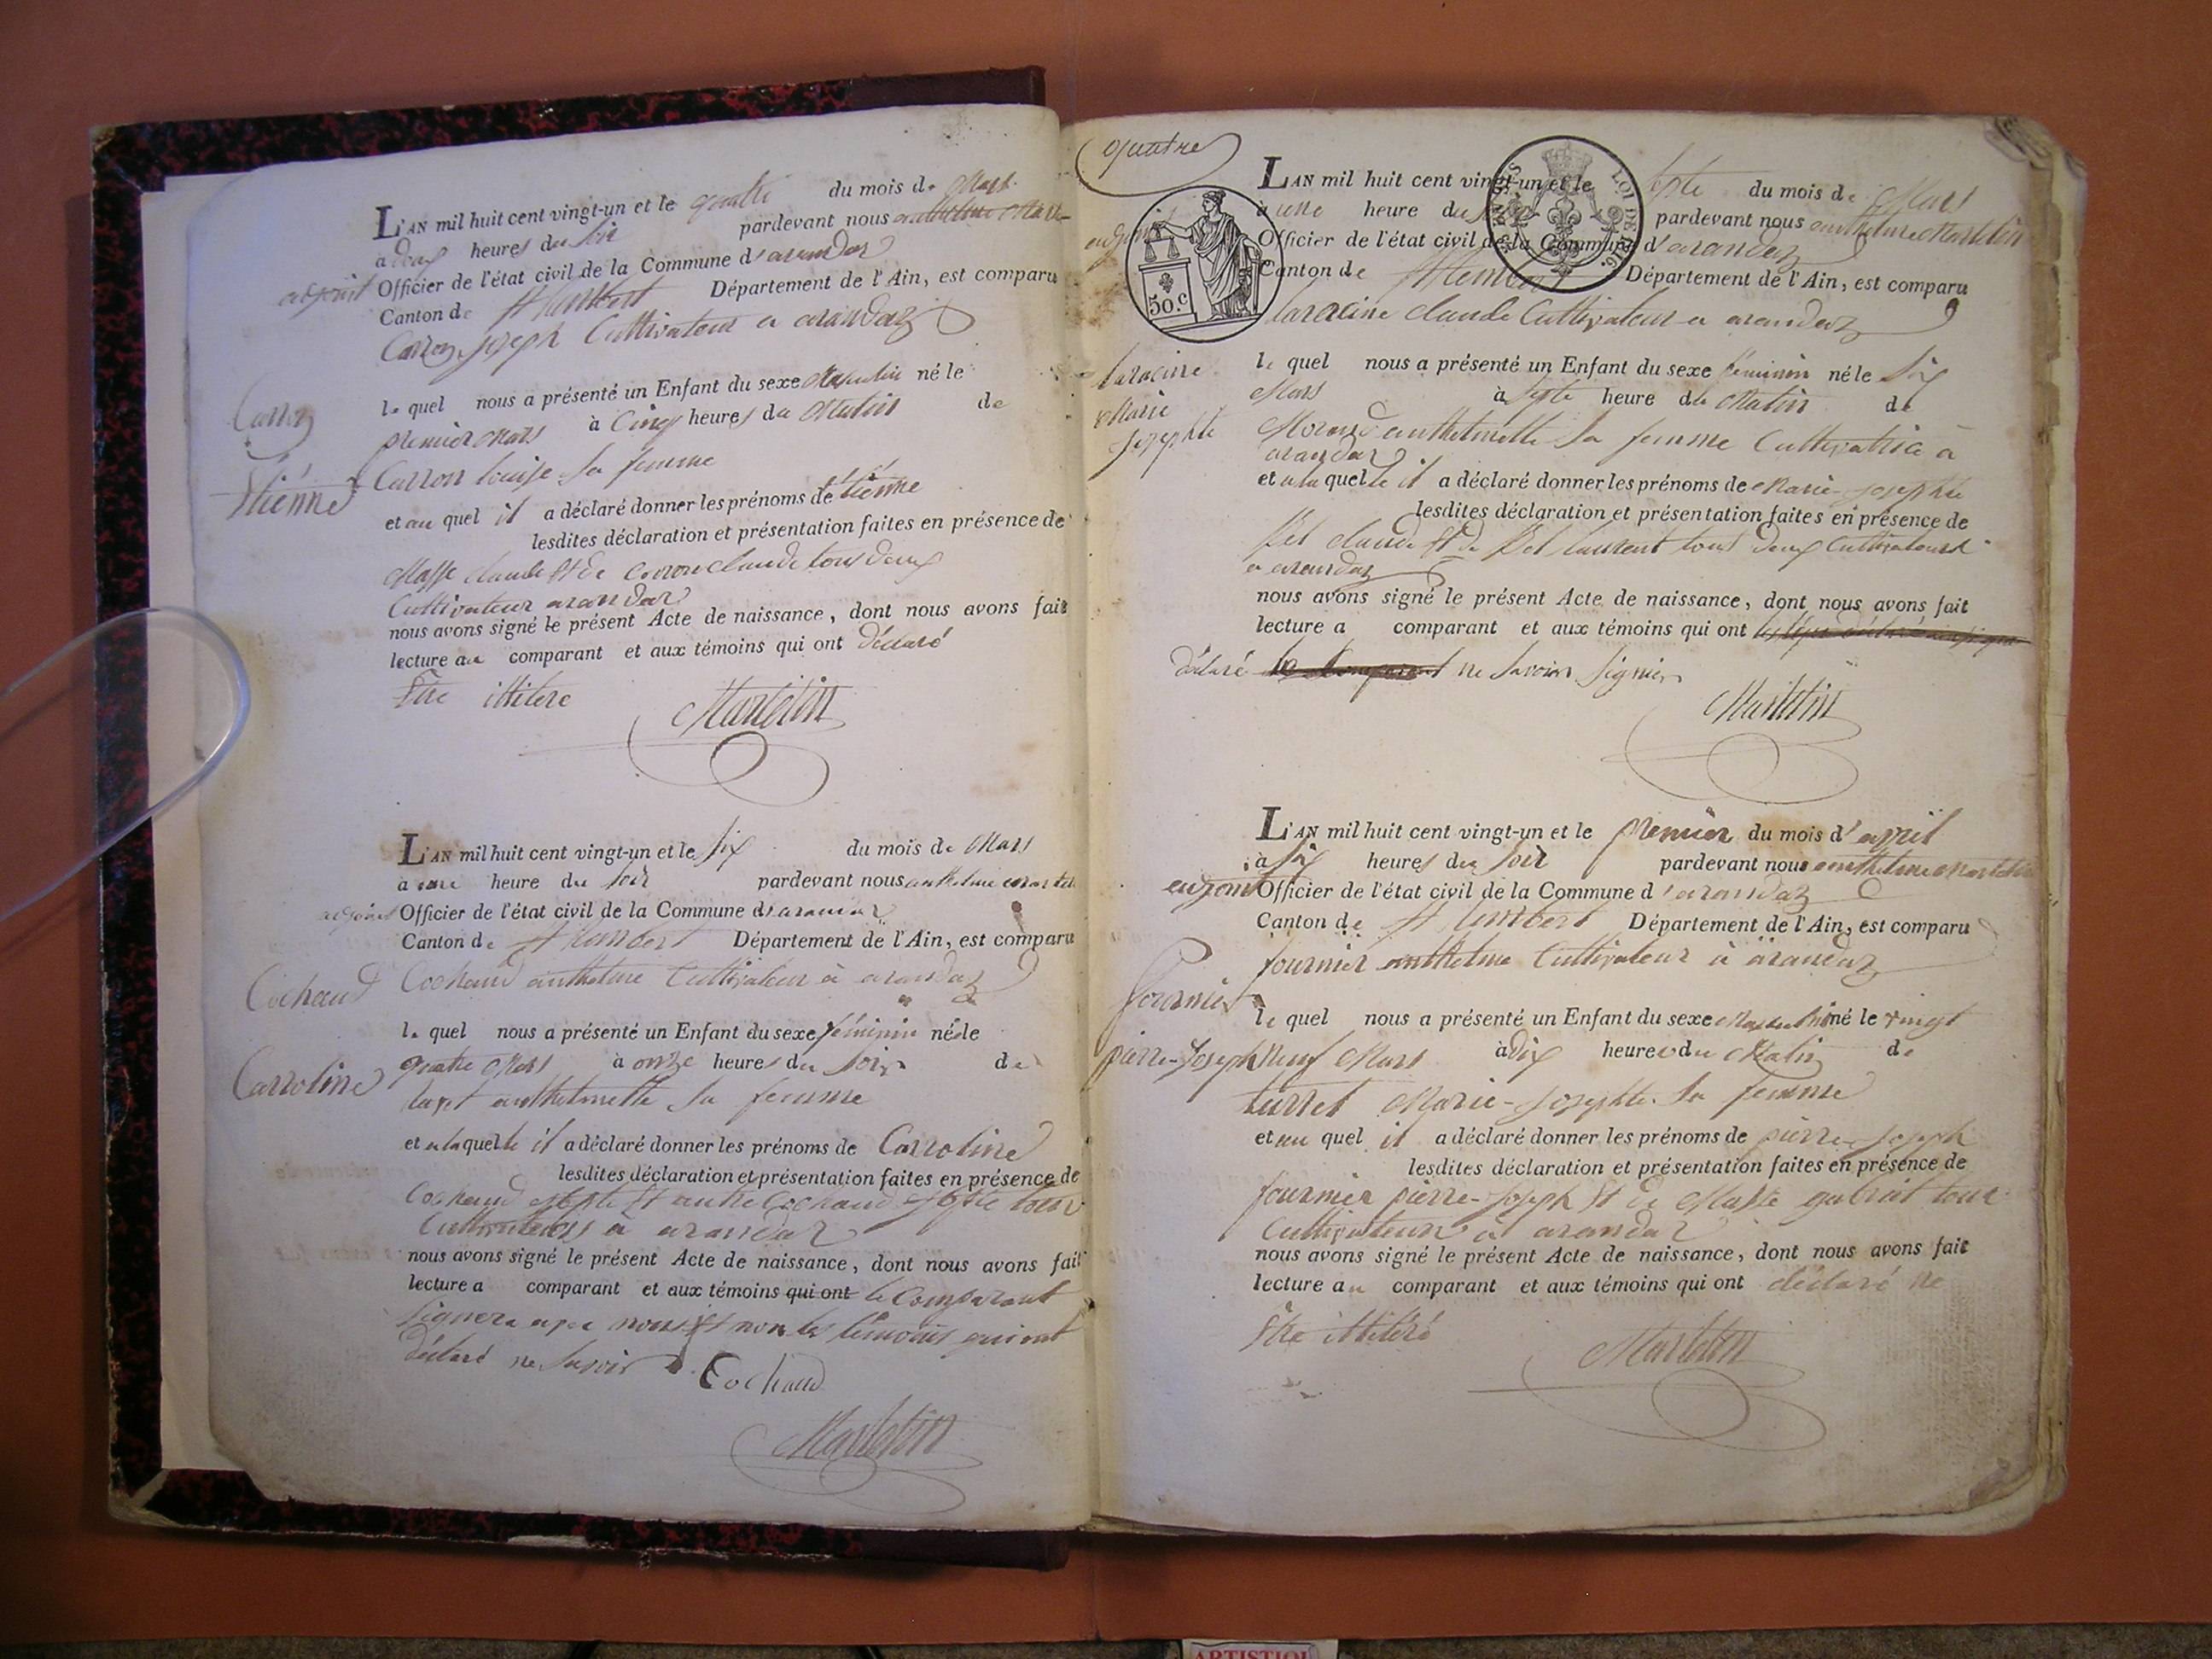 L'AN mil huit cent vingt-un et le quatre du mois de Mars
à deux heures du soir pardevant nous anthelme Marte-
adjoint Officier de l'état civil de la Commune d'arandaz
Canton de St Rambert Département de l'Ain, est comparu
Carron joseph Cultivateur a arandaz
le quel nous a présenté un Enfant du sexe Masculin né le
Carron
premier Mars à Cinq heures du Matin de
Carron louise sa femme
Étienne
et au quel il a déclaré donner les prénoms de étienne
lesdites déclaration et présentation faites en présence de
Masse claude et de carron claude tous deux
Cultivateur arandaz
nous avons signé le présent Acte de naissance, dont nous avons fait
lecture au comparant et aux témoins qui ont déclaré
Etre illitere
Martelin
L'AN mil huit cent vingt-un et le six du mois de Mars
a une heure du soir pardevant nous anthelme martel
adjoint Officier de l'état civil de la Commune d'arandaz
Canton de St Rambert Département de l'Ain, est comparu
Cochaud Cochaud anthelme Cultivateur à arandaz
le quel nous a présenté un Enfant du sexe féminin né le
quatre Mars à onze heures du soir de
Carroline
anthelmette sa femme
et a laquelle il a déclaré donner les prénoms de Carroline
lesdites déclaration et présentation faites en présence de
Cochaud et autre Cochaud tous
Cultivateurs a arandaz
nous avons signé le présent Acte de naissance, dont nous avons fait
lecture a comparant et aux témoins qui ont le Comparant
signera avec nous et non les témoins qui ont
déclaré ne savoir
Cochaud
Martelin
quatre
L'AN mil huit cent vingt-un et le septe du mois de Mars
à une heure du soir pardevant nous anthelme Martelin
adjoint Officier de l'état civil de la Commune d'arandaz
Canton de St Rambert Département de l'Ain, est comparu
50. C
LOI DE 1816.
laracine claude Cultivateur a arandaz
laracine le quel nous a présenté un Enfant du sexe féminin né le six
Mars à septe heure du Matin de
Marie
Josephte
Morand anthelmette sa femme Cultivatrice à
arandaz
et a la quelle il a déclaré donner les prénoms de Marie-Josephte
lesdites déclaration et présentation faites en présence de
claude et de laurent tous deux Cultivateurs
a arandaz
nous avons signé le présent Acte de naissance, dont nous avons fait
lecture a comparant et aux témoins qui ont
déclaré le Comparant ne savoir signer
Martelin
L'AN mil huit cent vingt-un et le premier du mois d'avril
à six heures du soir pardevant nous anthelme Martelin
adjoint Officier de l'état civil de la Commune d'arandaz
Canton de St Rambert Département de l'Ain, est comparu
fournier anthelme Cultivateur à arandaz
fournier
le quel nous a présenté un Enfant du sexe Masculin né le vingt
pierre-Joseph Neuf Mars à dix heures du Matin de
Marie-Josephte sa femme
et au quel il a déclaré donner les prénoms de pierre-Joseph
lesdites déclaration et présentation faites en présence de
fournier pierre-Joseph et de Masse gabriel tous
Cultivateur à arandaz
nous avons signé le présent Acte de naissance, dont nous avons fait
lecture au comparant et aux témoins qui ont déclaré ne
Etre illitéré
Martelin